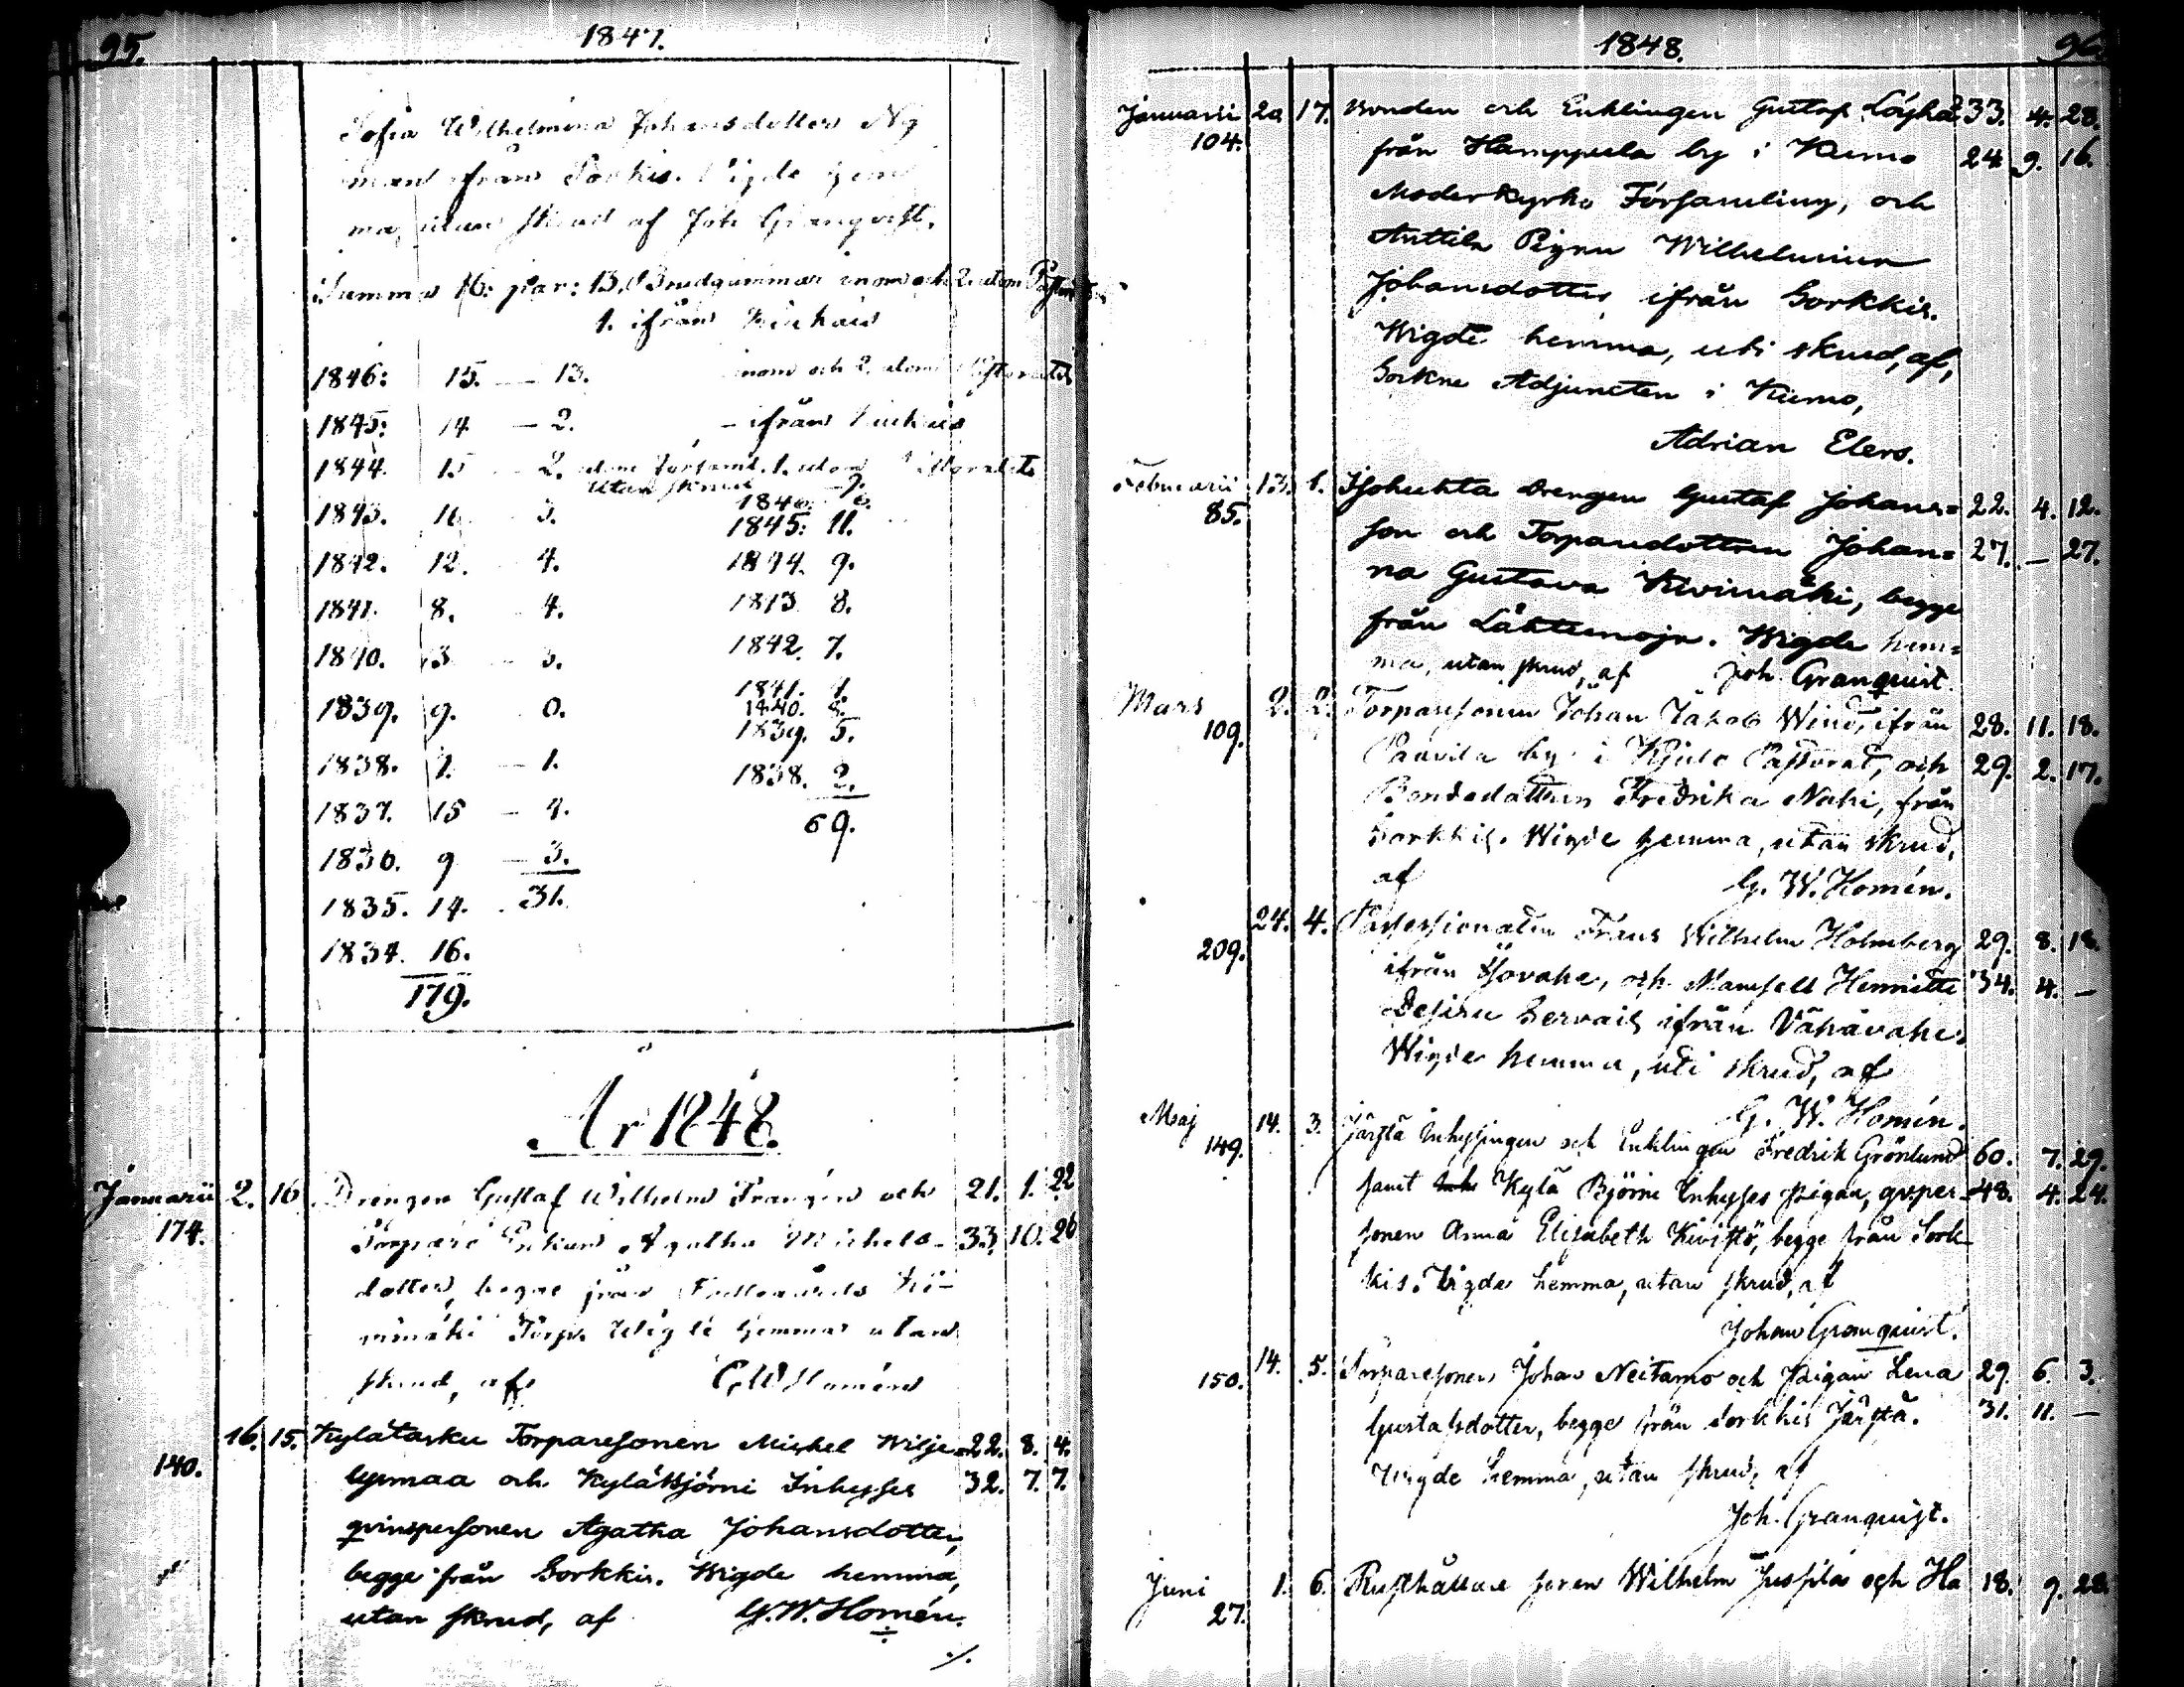 95.
1847.
Sofia Wilhelmina Johansdotter Ny
man ifrån Sorkis. Vigde hem
ma, utan skrud af Joh Granqvist.
Summa 16: par: 13. Brudgummar inom och 2. utom
1. ifrån
1846: 15. — 13. inom och 2. utom Pastoratet
1845: 14 — 2. — ifrån
1844. 15 2. utom Församl. 1. utom Pastoratet
utan skrud 7.
1846. 6.
1843. 16 3. 1845: 11.
1842. 12. 4. 1844. 9.
1841. 8. 4. 1843 8.
1840. 13 3. 1842. 7.
1841. 1.
1840.
1839. 9. 0. 1839. 5.
1838. 7. — 1. 1838. 2.
1837. 15 — 4. 69.
1836. 9 — 3.
1835. 14. 31.
1834. 16.
179.
År 1848.
Januarii 2. 16 Drengen Gustaf Wilhelm Franzén och 21. 1. 22
174. Torpare Enkan Agatha Michels- 33. 10. 26
dotter, begge från
mäki Torp. Wigde hemma utan
skrud, af G W Homén
16. 15. Kylätasku Torparesonen Michel Wilje= 22. 8. 4.
140. lysmaa och Kyläbjörni Inhyses 32. 7. 7.
qvinspersonen Agatha Johansdotter,
begge från Sorkkis. Wigde hemma,
utan skrud, af G. W. Homén.
./.
1848.
96.
Januarii 20 17. Bonden och Enklingen Gustaf Löyhä 33. 4. 28.
104. från Hamppula by i Kumo 24. 9. 16.
Moderkyrko Församling, och
Anttila Pigan Wilhelmina
Johansdotter ifrån Sorkkis.
Wigde hemma, uti skrud, af,
Sockne Adjuncten i Kumo,
Adrian Elers.
Februarii 13. 1. Isohuhta drengen Gustaf Johans= 22. 4. 12.
85. son och Torparedottren Johan= 27. — 27.
na Gustava Kivimäki, begge
från Lähteenoja. Wigde hem=
ma, utan skrud, af Joh. Granquist.
Mars 2. 2. Torparesonen Johan Jakob Wind, ifrån 28. 11. 18.
109. Paavila by i Kjulo Pastorat, och 29. 2. 17.
Bondedottren Fredrika Nohi, från
Sorkkis. Wigde hemma, utan skrud,
af G. W. Homén.
24. 4. Possessionaten Frans Wilhelm Holmberg 29. 8. 18.
209. ifrån Isovahe, och Mamsell Henriette 34. 4. —
Desiree Servais ifrån Vähävahe.
Wigde hemma, uti skrud, af
G. W. Homén.
Maj 14. 3. Järstä Inhysingen och Enklingen Fredrik Grönlund 60. 7. 29.
149. samt Kylä Björni Inhyses pigan, qv.per- 48. 4. 24.
sonen Anna Elisabeth Kivistö, begge från Sork-
kis. Wigde hemma, utan skrud, af
Johan Granquist.
14. 5. Torparesonen Johan Neitamo och Pigan Lena 29. 6. 3.
150. Gustafsdotter, begge från Sorkkis Järstä. 31. 11. —
Wigde hemma, utan skrud, af
Joh. Granquist.
Juni 1. 6. Rusthållare sonen Wilhelm Jussila och Ha 18. 9. 28.
27.